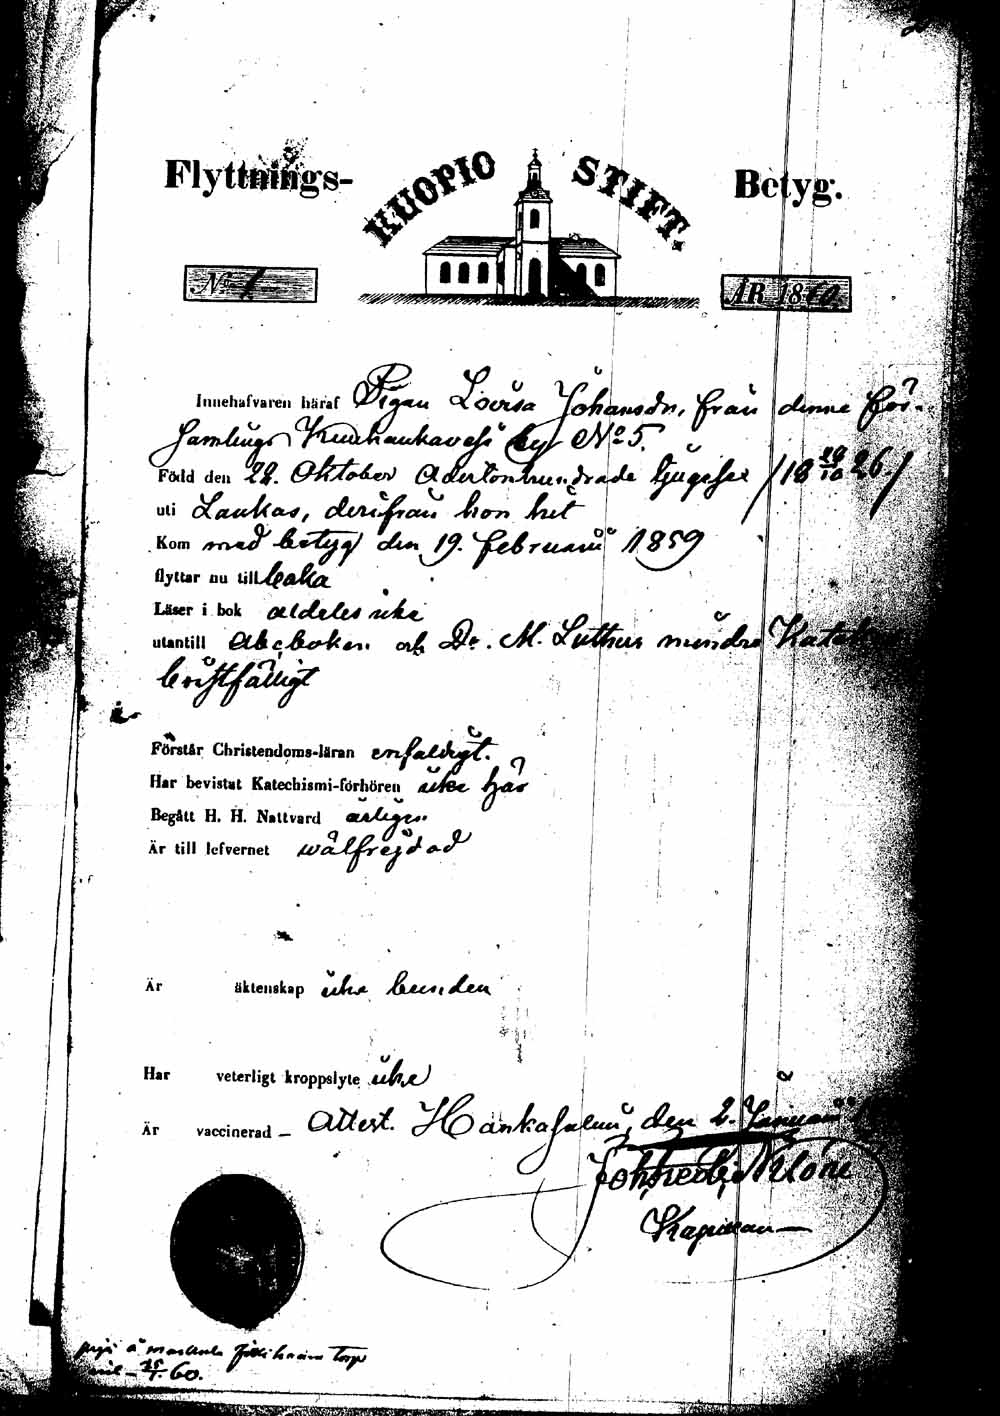 Flyttnings- KUOPIO STIFT. Betyg.
No 1 ÅR 1860.
Innehafvaren häraf Pigan Lovisa Johansdr, från denne För-
samlings Kuuhankavesi by No 5.
Född den 22. Oktober Adertonhundrade tjugesex /18 26./
uti Laukas, derifrån hon hit
Kom med betyg den 19. februarii 1859
flyttar nu till baka
Läser i bok aldeles icke
utantill Abcboken och Dr. M. Luthers mindre
bristfälligt
Förstår Christendoms-läran enfaldigt.
Har bevistat Katechismi-förhören icke här
Begått H. H. Nattvard årligen
Är till lefvernet wälfrejdad
Är äktenskap icke bunden
Har veterligt kroppslyte icke
Är vaccinerad – Attest. Hankasalmi, den 2. Januarii
Kapellan
torp
60.